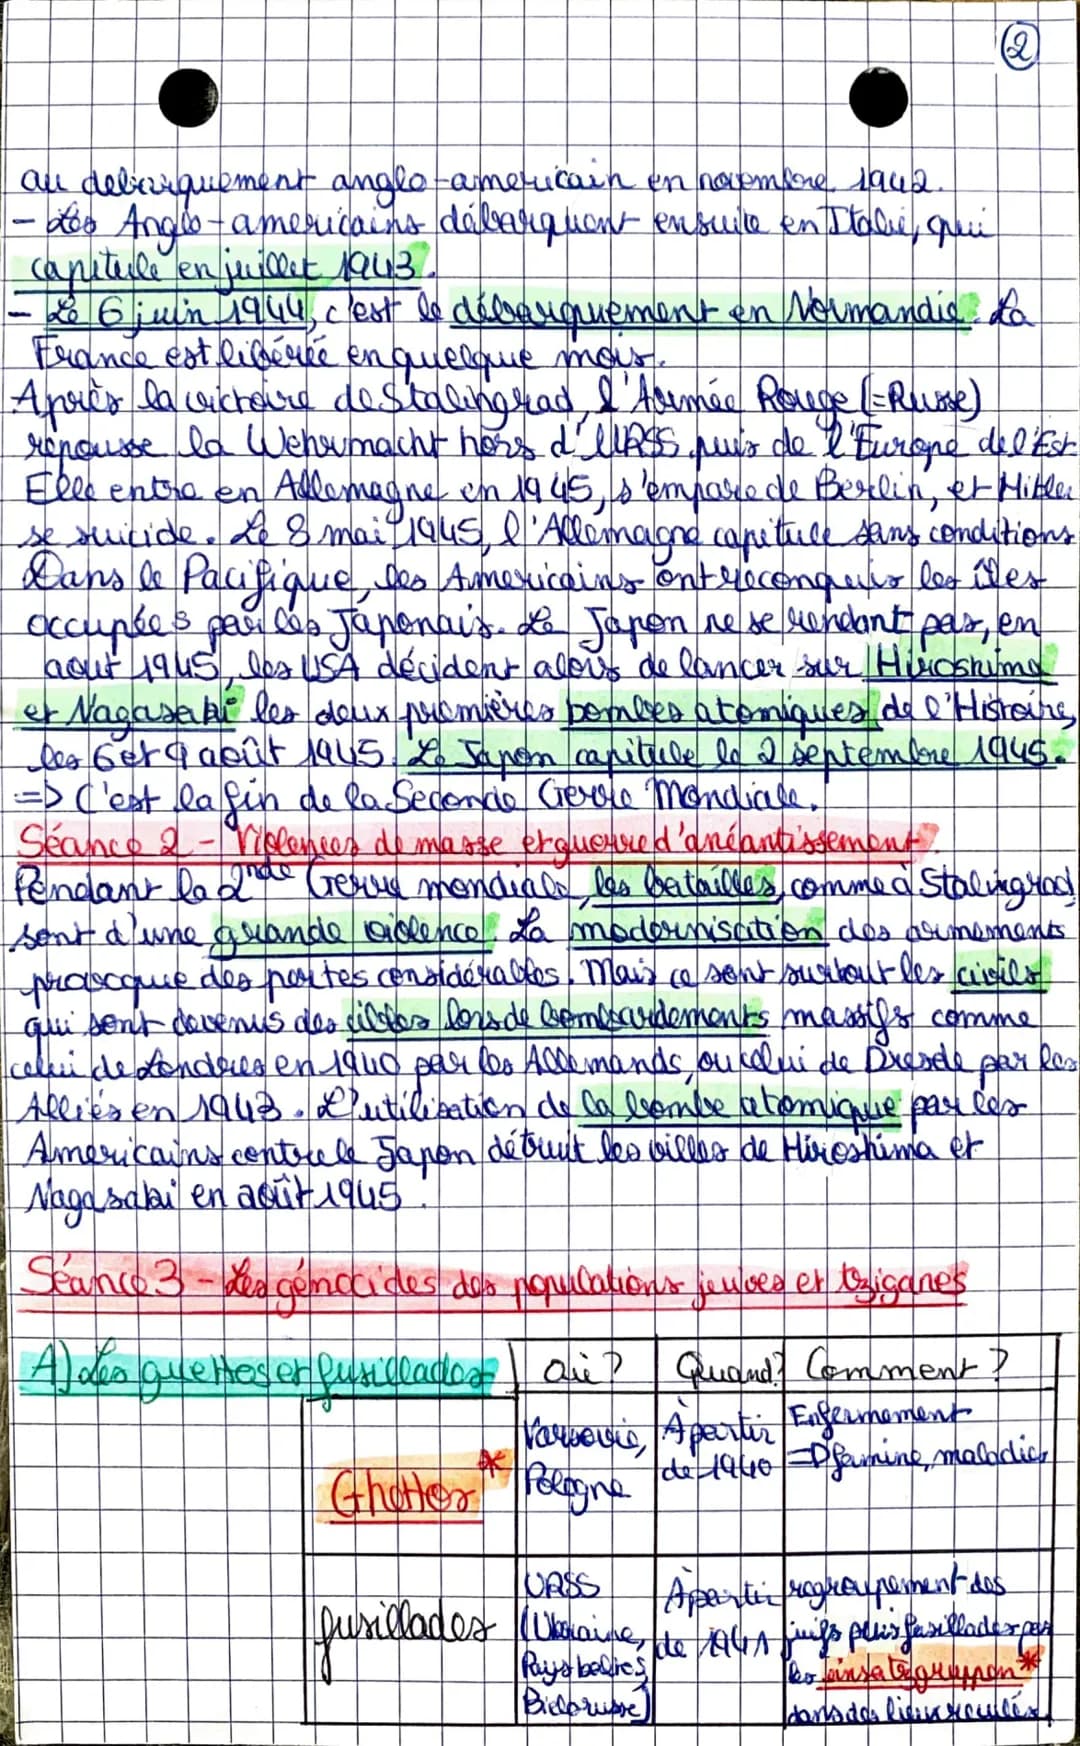 2
au debarquement anglo-americain en novembre 1942.
- Les Anglo-americains débarquent ensuite en Italie, qui
capitule en juillet 1943.
- Le 6 juin 1944, c'est le débarquement en Normandie. La
France est libérée en quelque mois.
Après la victoire de Stalingrad, l'Armée Rouge (=Russe)
repousse la Wehrmacht hors d'URSS puis de l'Europe de l'Est
Elle entre en Allemagne en 1945, s'empare de Berlin, et Hitler
se suicide. Le 8 mai 1945, l'Allemagne capitule sans conditions
Dans le Pacifique, les Americains ont reconquis les îles
occupées par les Japonais. Le Japon ne se rendant pas, en
aout 1945, les USA décident alors de lancer sur Hiroshima
et Nagasaki les deux premières bombes atomiques de l'Histoire,
les 6 et 9 août 1945. Le Japon capitule le 2 septembre 1945.
=> C'est la fin de la Seconde Gerre Mondiale.
Séance 2 - Violences de masse et guerre d'anéantissement
Pendant la 2nde Gerre mondiale, les batailles, comme à Stalingrad,
sont d'une grande violence. La modernisation des armements
provoque des pertes considérables. Mais ce sont surtout les civils
qui sont devenus des cibles lors de bombardements massifs comme
celui de Londres en 1940 par les Allemands, ou celui de Dresde par les
Alliés en 1943. L'utilisation de la bombe atomique par les
Americains contre le Japon détruit les villes de Hiroshima et
Nagasaki en août 1945.
Séance 3 - Les génocides des populations jeuives et tziganes
A) Les guettos et fusillades où? Quand? Comment?
Ghettos* Varsovie, Pologne À partir de 1940 Enfermement
=> famine, maladies
fusillades URSS À partir regroupement des
(Ukraine, de 1941 juifs puis fusillades par
Pays baltes, les einsatzgruppen*
Bielorusse) dans des lieux reculés